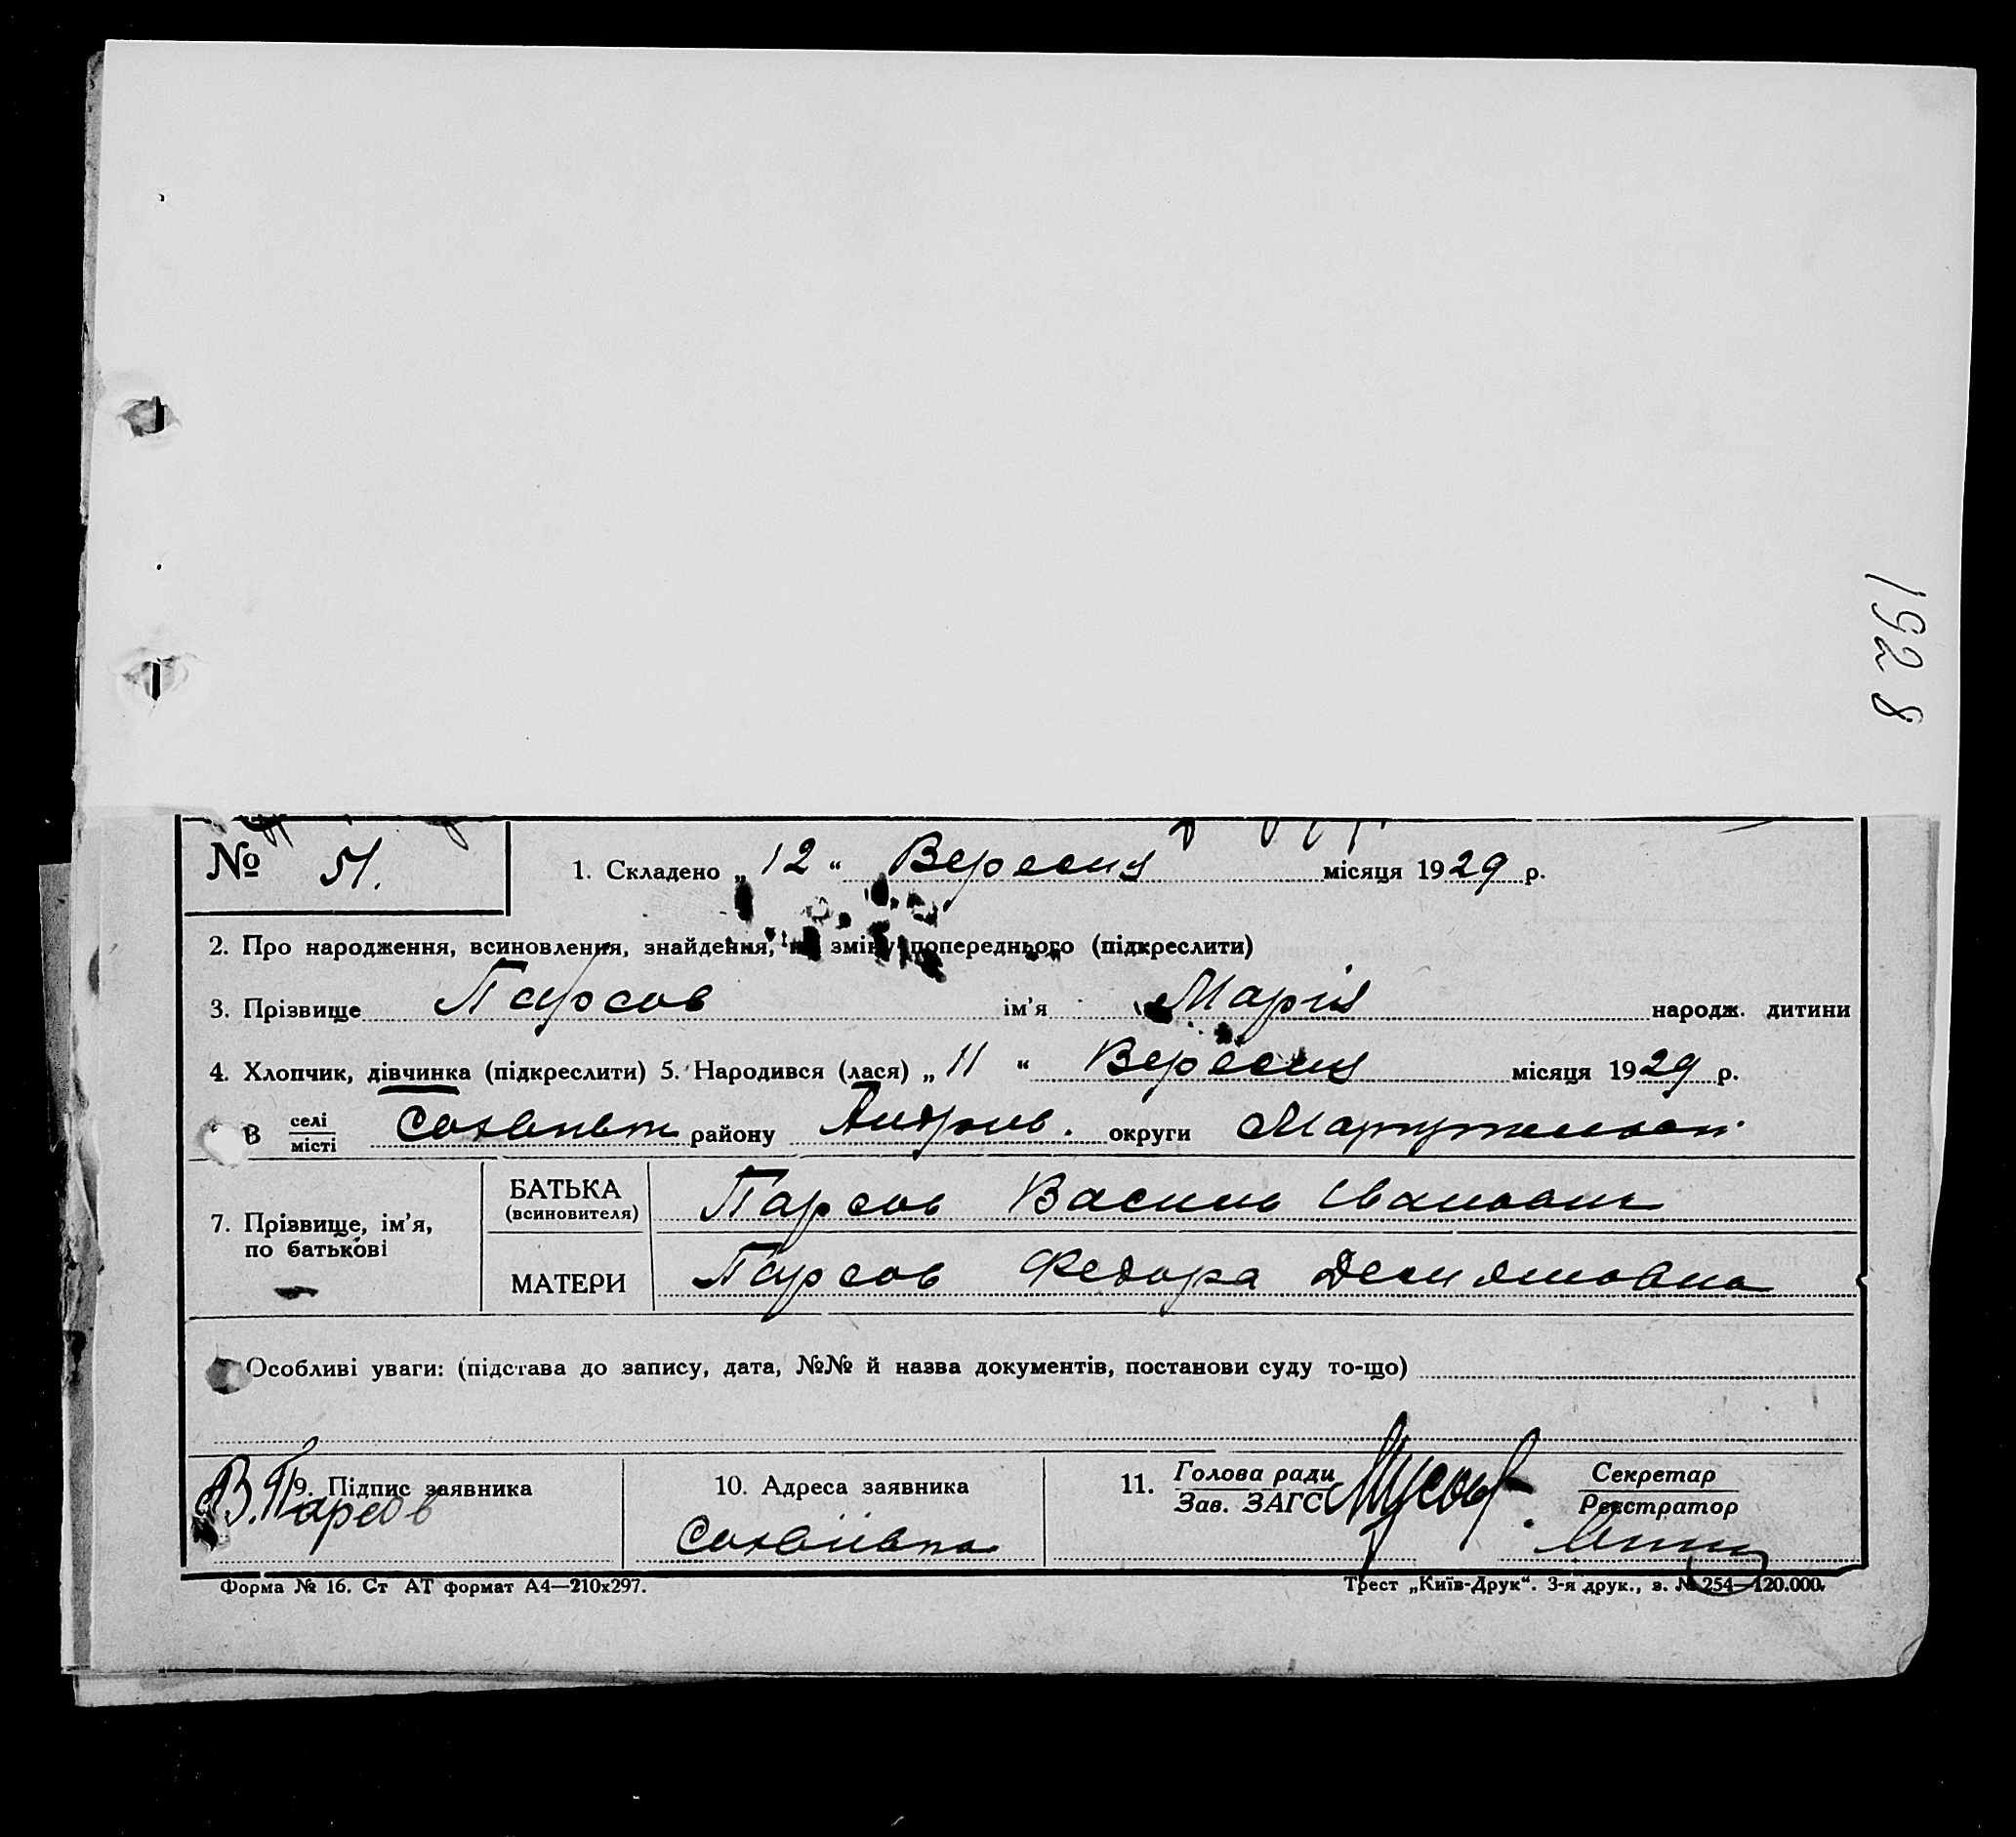 1928
№ 51.
1. Складено „ 12 “ Вересня місяця 1929 р.
2. Про народження, всиновлення, знайдення, зміну попереднього (підкреслити)
3. Прізвище Парсов ім’я Марія народж. дитини
4. Хлопчик, дівчинка (підкреслити) 5. Народився (лася) „ 11 “ Вересня місяця 1929 р.
В селі / місті району Андріів. округи
7. Прізвище, ім’я, по батькові
БАТЬКА (всиновителя) Парсов Василь Іванович
МАТЕРИ Парсов Федора
Особливі уваги: (підстава до запису, дата, №№ й назва документів, постанови суду то-що)
9. Підпис заявника
В. Парсов
10. Адреса заявника
11. Голова ради / Зав. ЗАГС
Секретар / Реєстратор
Форма № 16. Ст АТ формат А4—210х297.
Трест „Київ-Друк“. 3-я друк., з. № 254—120.000.